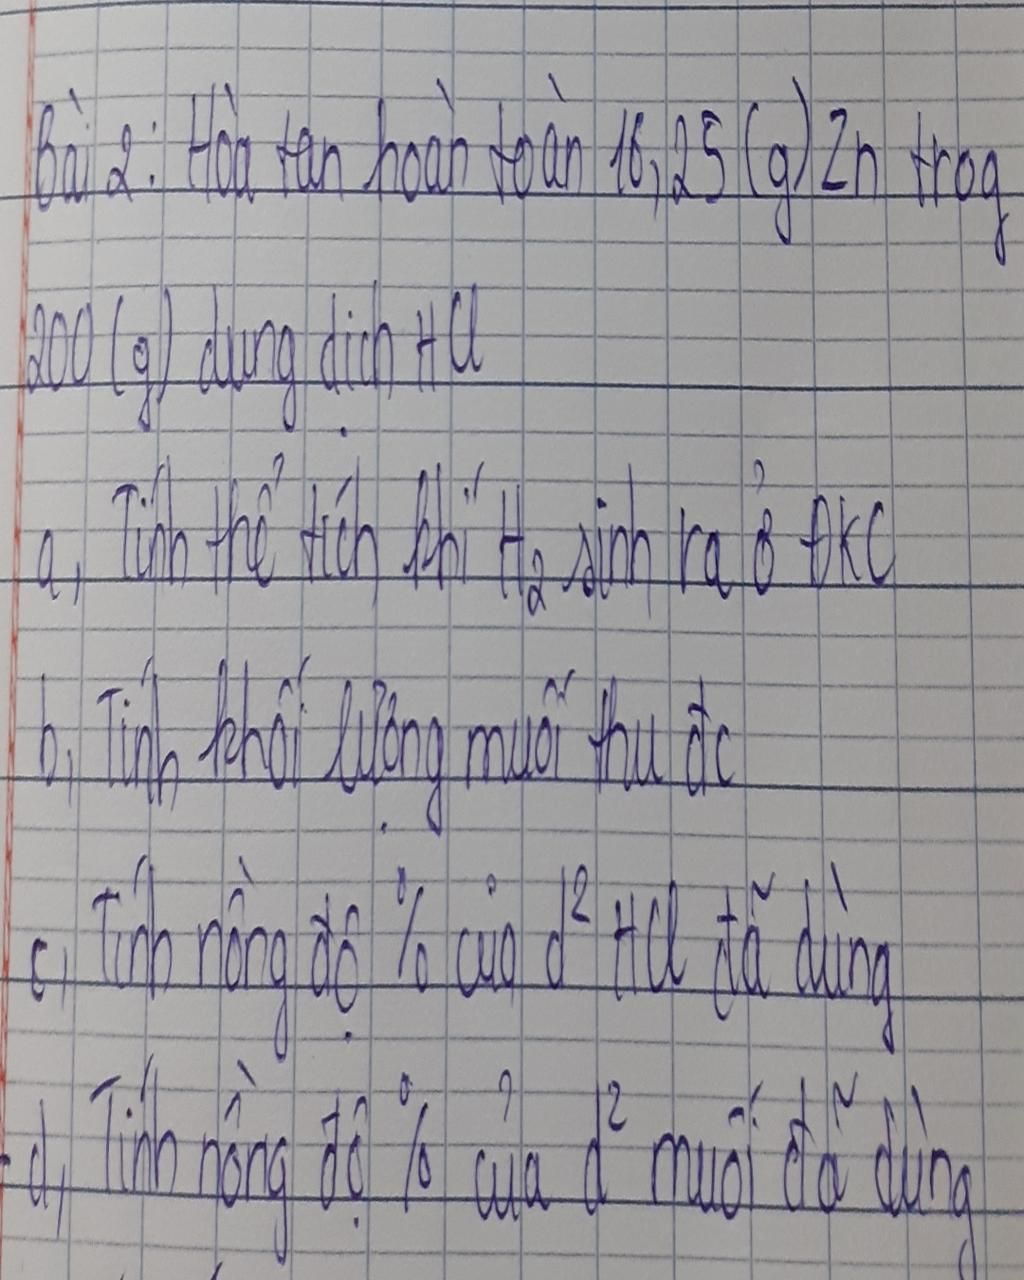 Bài 2: Hòa tan hoàn toàn 16,25 (g) Zn trog
200 (g) dung dịch HCl
a, Tính thể tích khí H₂ sinh ra ở ĐKC
b, Tính khối lượng muối thu đc
c, Tính nồng độ % của d² HCl đã dùng
d, Tính nồng độ % của d² muối đã dùng